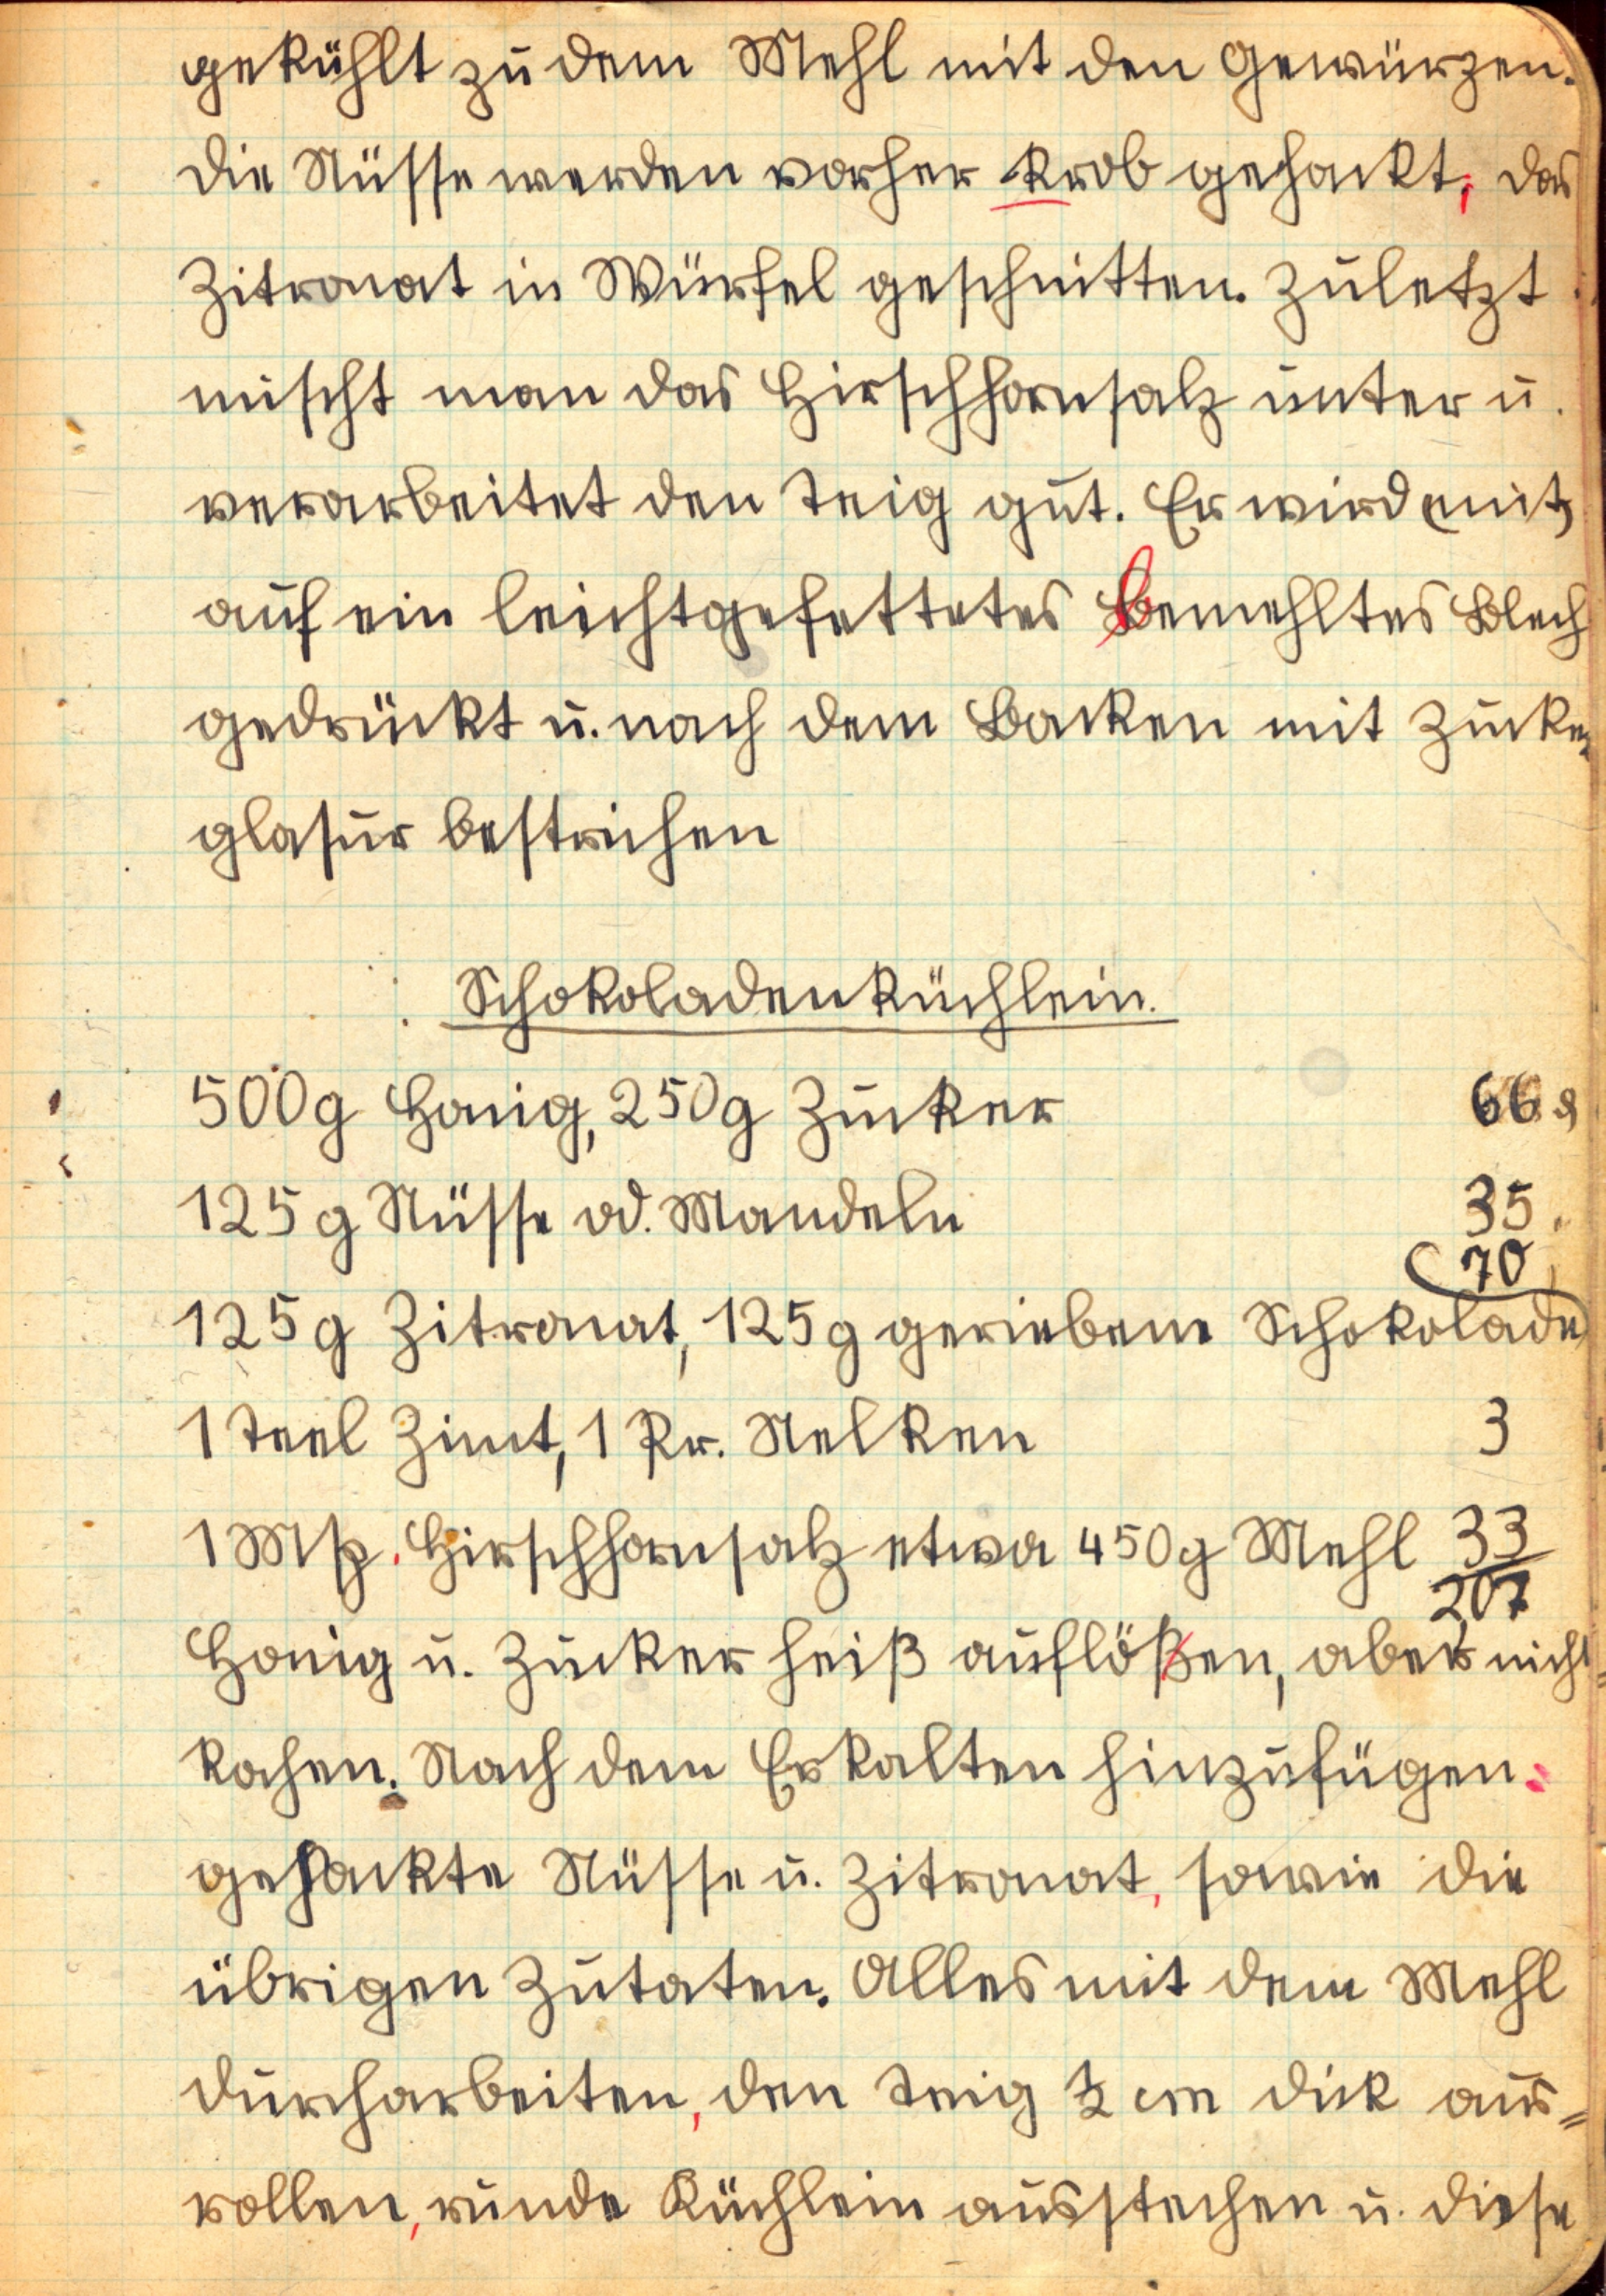 gekühlt zu dem Mehl mit den Gewürzen.
Die Nüsse werden vorher krob gehackt, das
Zitronat in Würfel geschnitten. Zuletzt
mischt man das Hirschhornsalz unter u.
verarbeitet den Teig gut. Er wird (mit)
auf ein leichtgefettetes bemehltes Blech
gedrückt u. nach dem Backen mit Zucker
glasur bestrichen
Schokoladenküchlein.
500g Honig, 250g Zucker 66 ₰
125g Nüsse od. Mandeln 35 "
70
125g Zitronat, 125g geriebene Schokolade
1 Teel Zimt, 1 Pr. Nelken 3
1 Msp. Hirschhornsalz etwa 450g Mehl 33
207
Honig u. Zucker heiß auflößen, aber nicht
kochen. Nach dem Erkalten hinzufügen:
gehackte Nüsse u. Zitronat, sowie die
übrigen Zutaten. Alles mit dem Mehl
durcharbeiten, den Teig ½ cm dick aus=
rollen, runde Küchlein ausstechen u. diese